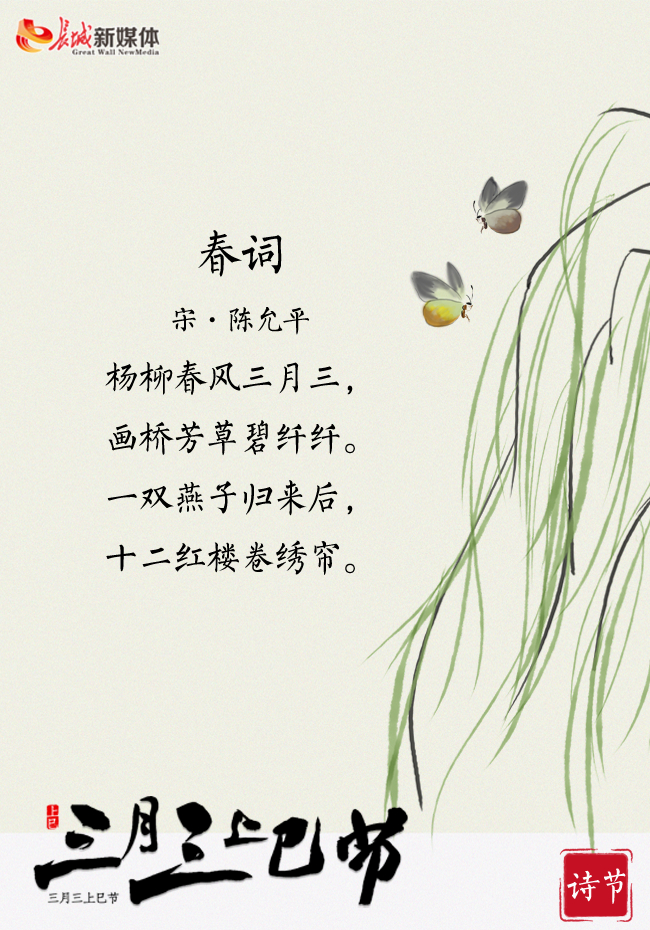 长城新媒体
Great Wall NewMedia
春词
宋·陈允平
杨柳春风三月三，
画桥芳草碧纤纤。
一双燕子归来后，
十二红楼卷绣帘。
上巳
三月三上巳节
三月三上巳节
诗节